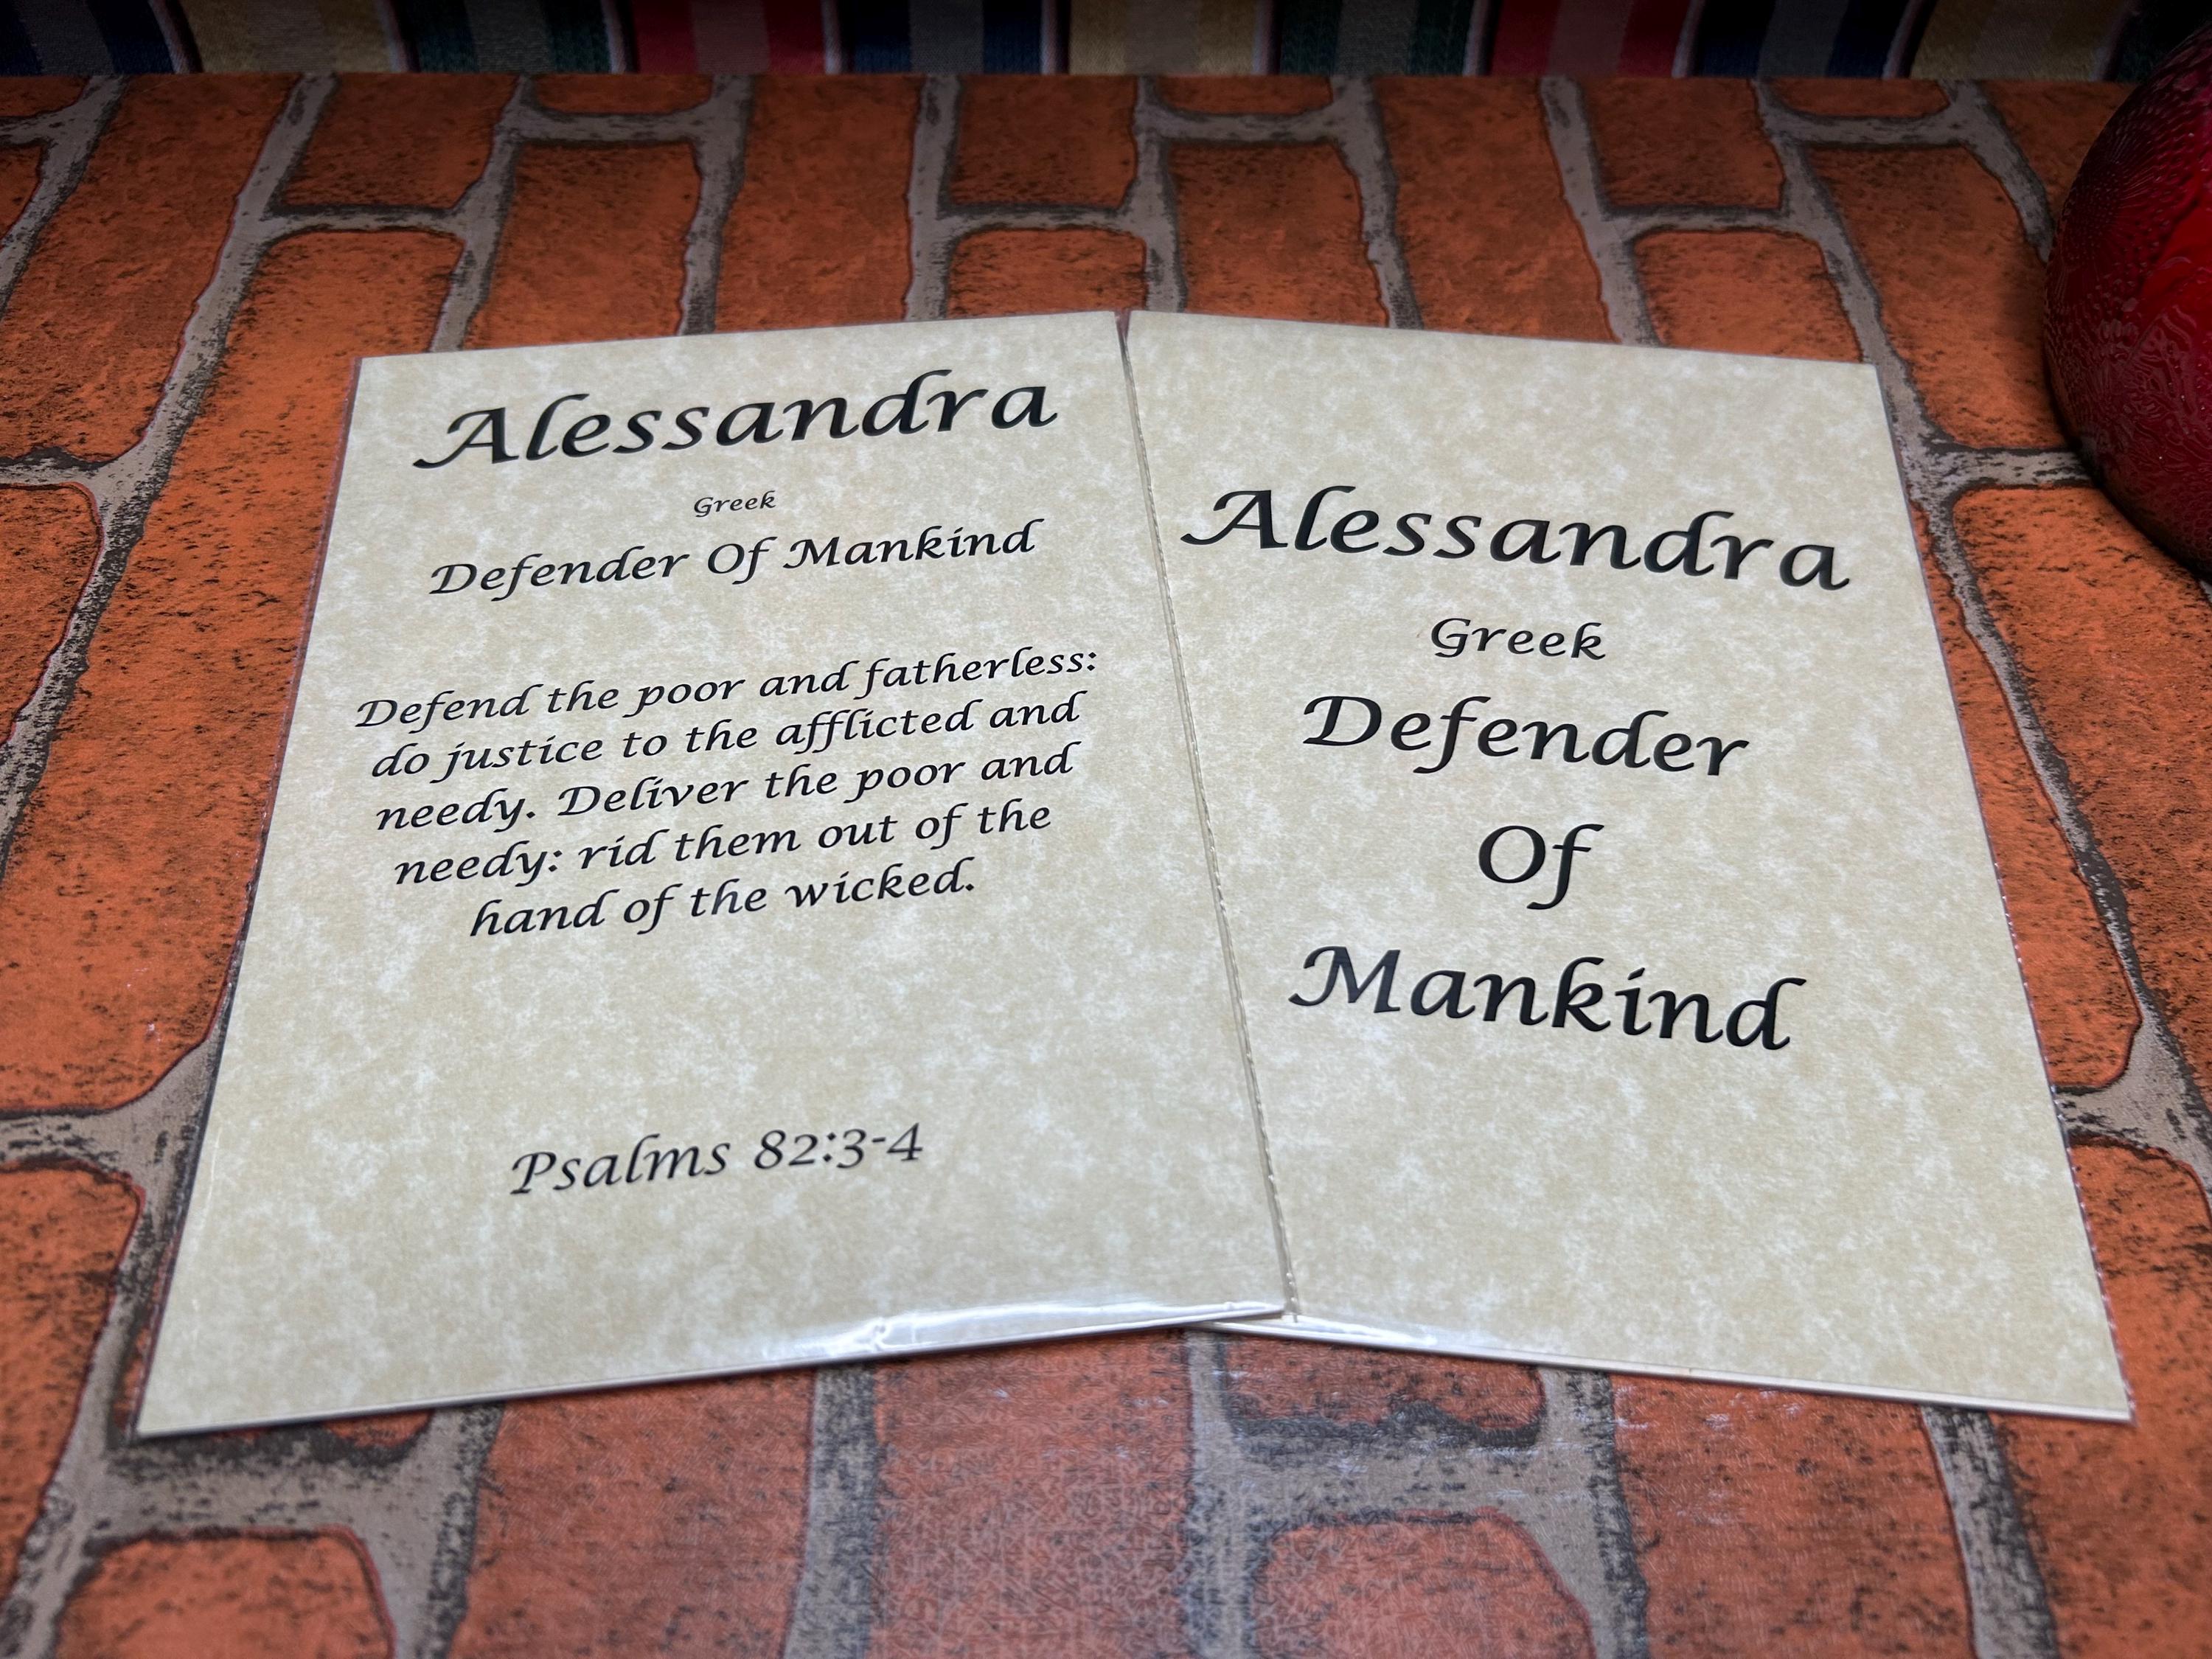 Alessandra
Greek
Defender Of Mankind
Defend the poor and fatherless:
do justice to the afflicted and
needy. Deliver the poor and
needy: rid them out of the
hand of the wicked.
Psalms 82:3-4
Alessandra
Greek
Defender
Of
Mankind